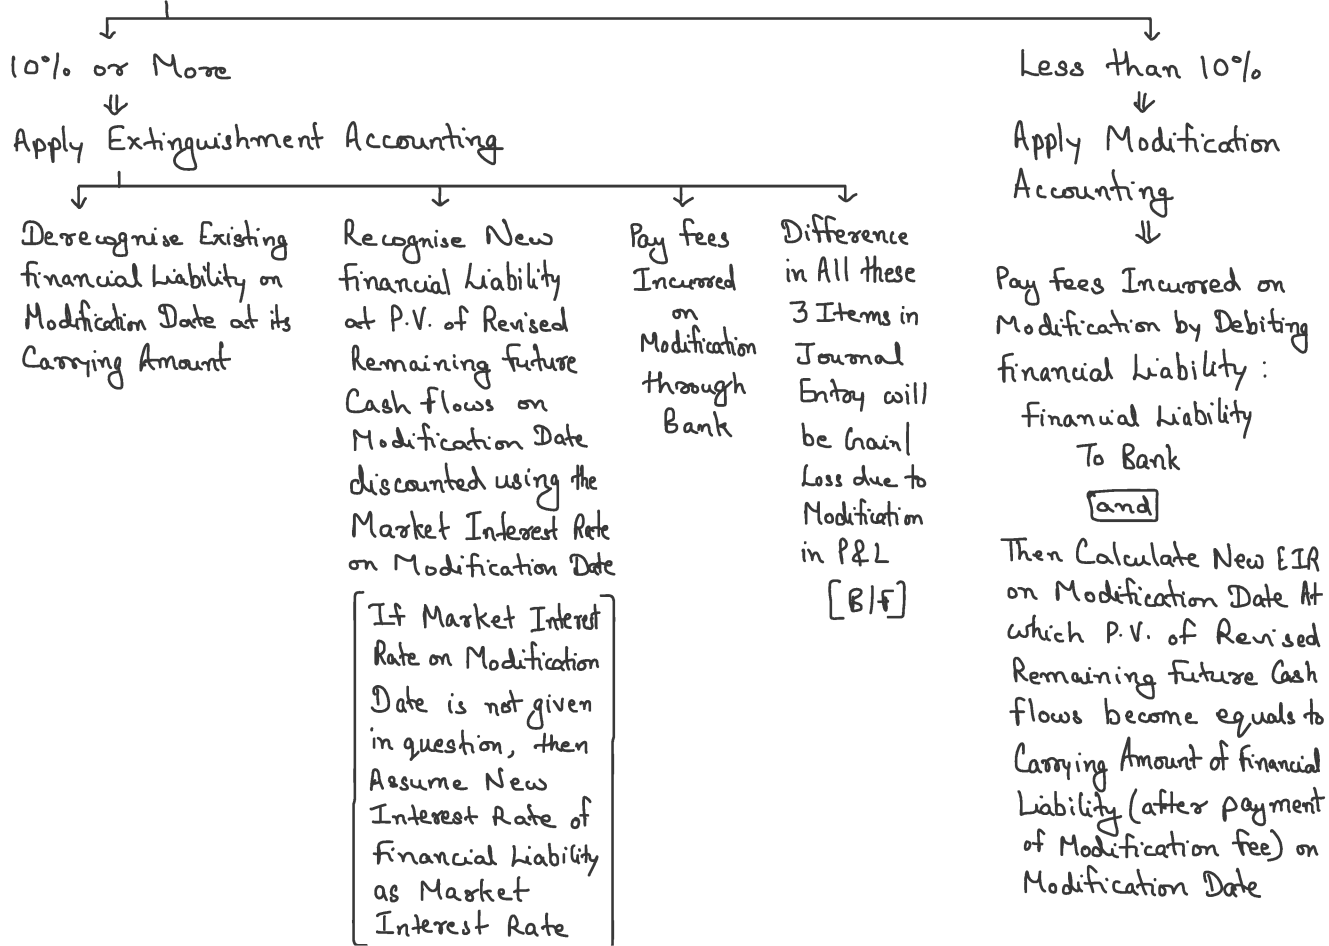 10% or More
⇓
Apply Extinguishment Accounting
Derecognise Existing
Financial Liability on
Modification Date at its
Carrying Amount
Recognise New
Financial Liability
at P.V. of Revised
Remaining Future
Cash Flows on
Modification Date
discounted using the
Market Interest Rate
on Modification Date
[If Market Interest
Rate on Modification
Date is not given
in question, then
Assume New
Interest Rate of
Financial Liability
as Market
Interest Rate]
Pay Fees
Incurred
on
Modification
through
Bank
Difference
in All these
3 Items in
Journal
Entry will
be Gain/
Loss due to
Modification
in P&L
[B/F]
Less than 10%
⇓
Apply Modification
Accounting
⇓
Pay Fees Incurred on
Modification by Debiting
Financial Liability :
Financial Liability
To Bank
and
Then Calculate New EIR
on Modification Date At
which P.V. of Revised
Remaining Future Cash
Flows become equals to
Carrying Amount of Financial
Liability (after payment
of Modification Fee) on
Modification Date